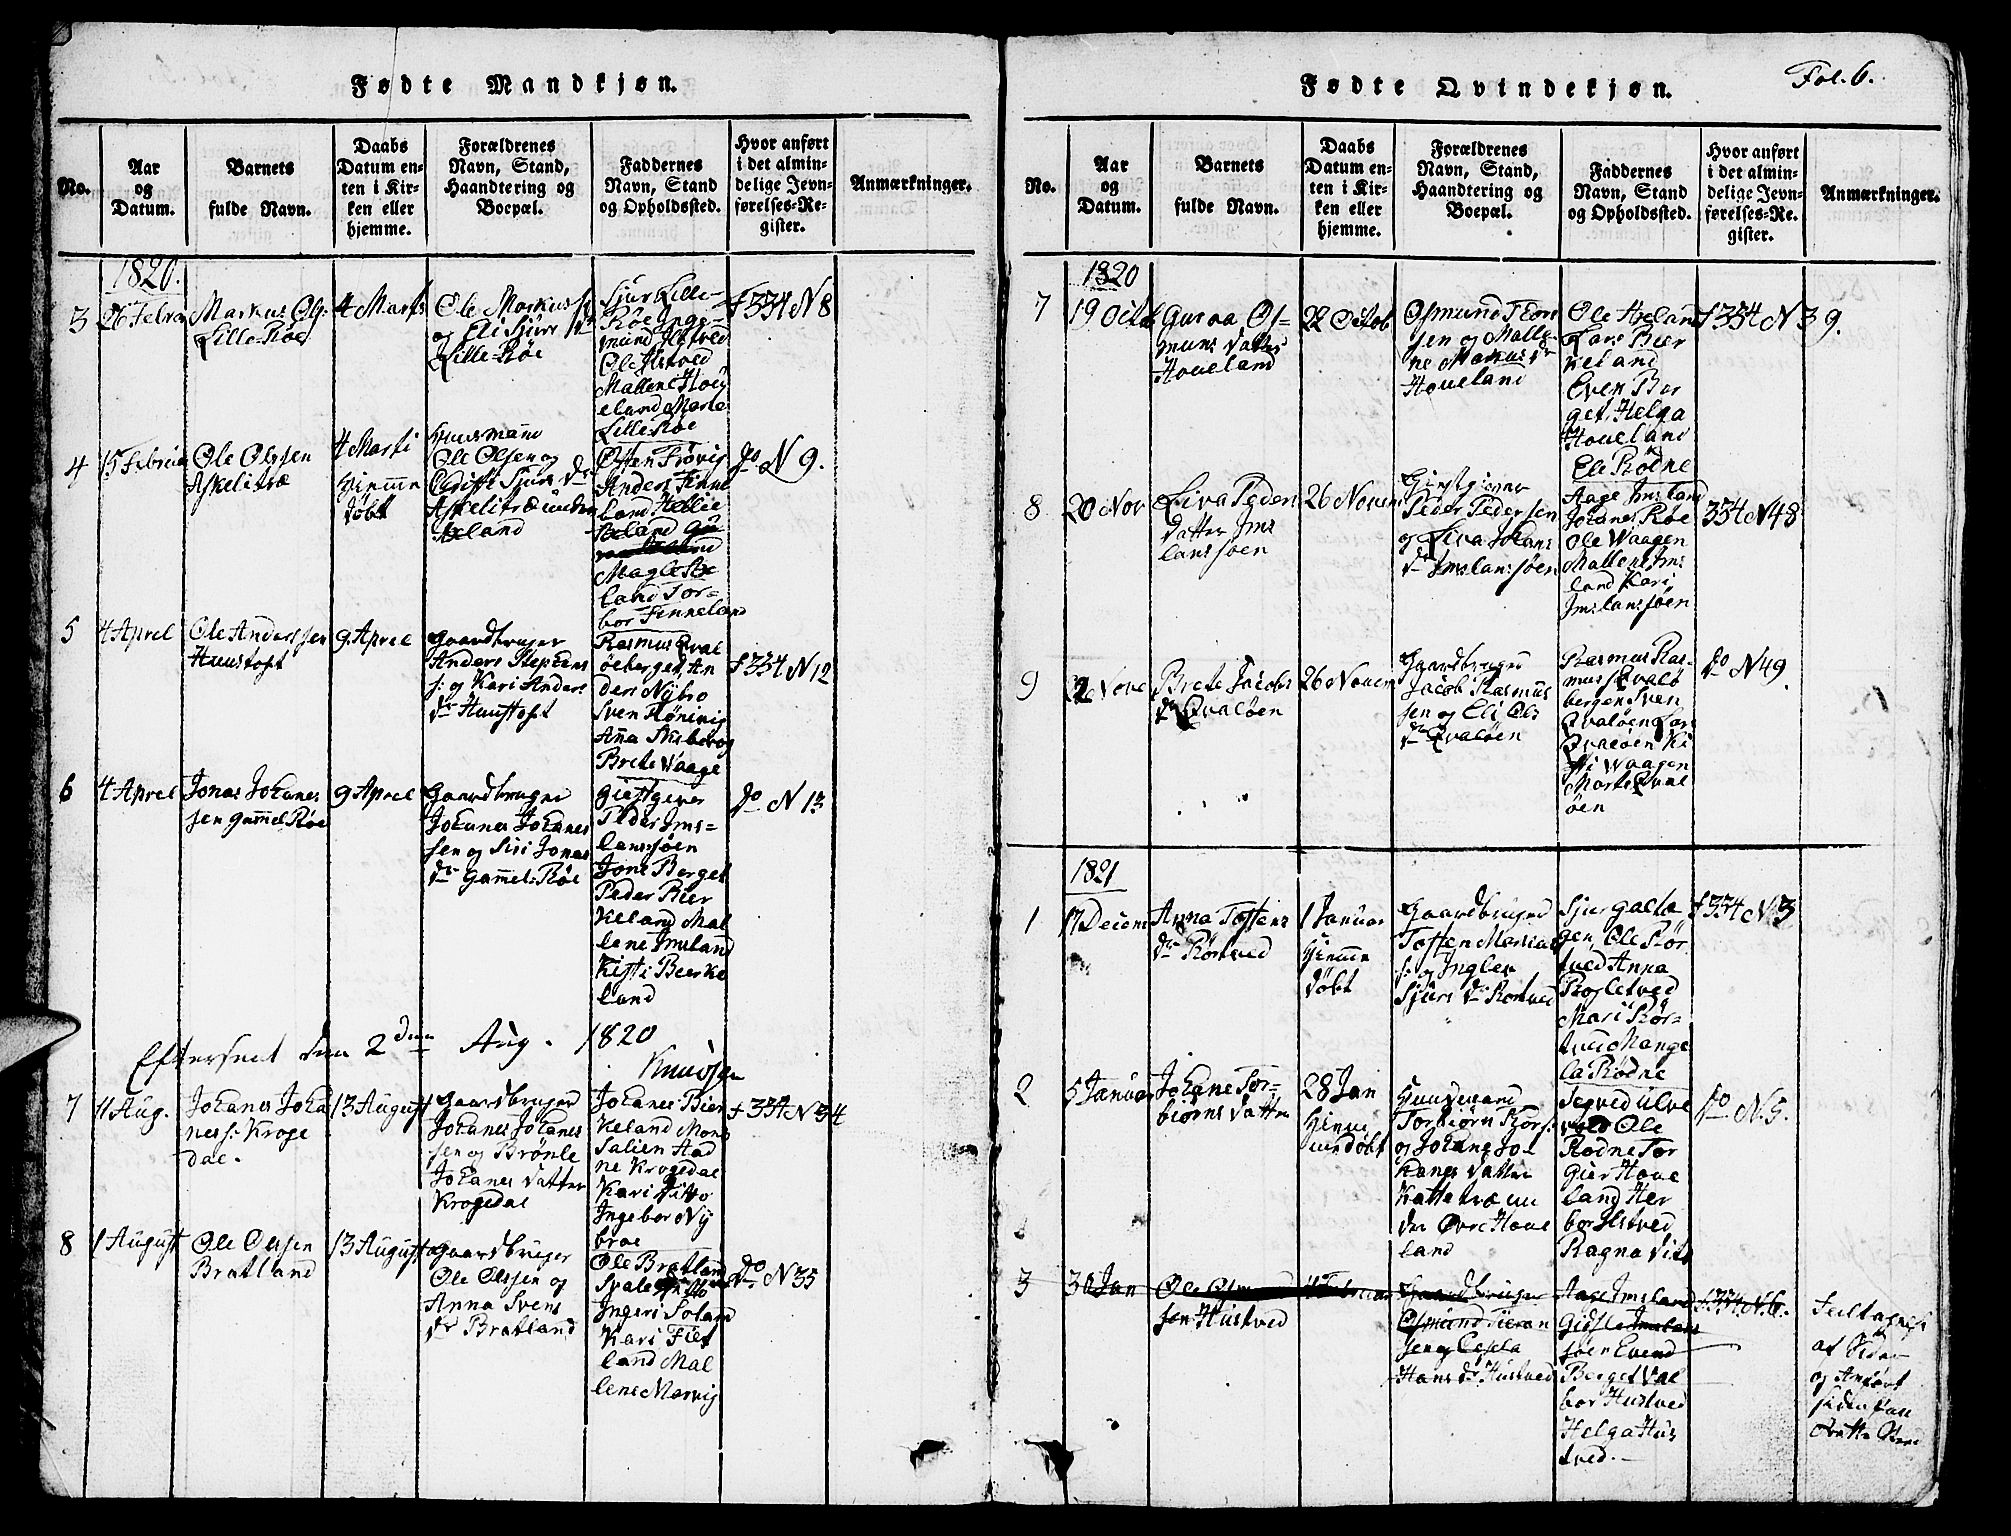 Fødte Mandkjøn.
No.
Aar
og
Datum.
Barnets
fulde Navn.
Daabs
Datum en-
ten i Kir-
ken eller
hjemme.
Forældrenes
Navn, Stand,
Haandtering og
Boepæl.
Faddernes
Navn, Stand
og Opholdssted.
Hvor anført
i det almin-
delige Jevn-
førelses-Re-
gister.
Anmærkninger.
1820.
3
26 Febra
Markus Ols:
Lille-Røe
4 Marts
Ole Markuss:
og Eli Sjurs dr
Lille-Røe
Sjur Lille-
Røe Inge-
mund Ilstved
Ole Ilstved
Mallene Hov
eland Marte
Lille Røe
f 334 N 8
4
15 Februa
Ole Olssen
Askelitræ
4 Marti
Hiemme
døbt
Huusmand
Ole Olsen og
Christi Sjurs dr
Askelitræ under
Anders Finne
land
land Tor-
bor Finneland
do N 9.
5
4 Aprel
Ole Anderssen
Haustoft
9 Aprel
Gaardbruger
Anders Stephens
s: og Kari Anders
dr Haustoft
Rasmus Qval
øeberget, An
ders Nybro
Sven Rønevig
Anna
Brete Waage
f 334 N 12
6
4 Aprel
Jonas Johanes
sen Gammel Røe
9 Aprel
Gaardbruger
Johanes Johanes
sen og Siri Jonas
dr Gammel-Røe
Giestgiver
Peder Ims-
lanssøen
Jone Berget
Peder Bier
keland Mal
lene Imsland
Kisti Beerke
land
do N 13
Efterseet den 2den Aug. 1820
Knudsen
7
11 Aug.
Johanes Joha
ness: Kroge
dal.
13 August
Gaardbruger
Johanes Johanes
sen og Brønle
Johanes datter
Krogedal
Johanes Bier
keland Mons
Salien Had
ne Krogedal
Kari ditto
Ingebor Ny
broe
f 334 N 34
8
1 August
Ole Olssen
Bratland
13 August
Gaardbruger
Ole Olssen og
Anna Svens
dr Bratland
Ole Bratland
Svale ditto
Ingeri Soland
Kari Fiet
land Mal
lene Marvig
do N 35
Fol. 6.
Fødte Qvindekjøn.
No.
Aar
og
Datum.
Barnets
fulde Navn.
Daabs
Datum en-
ten i Kir-
ken eller
hjemme.
Forældrenes
Navn, Stand,
Haandtering og
Boepæl.
Faddernes
Navn, Stand
og Opholdssted.
Hvor anført
i det almin-
delige Jevn-
førelses-Re-
gister.
Anmærkninger.
1820
7
19 Octob
Guroa Os-
muns datter
Hoveland
22 Octob
Osmund Thor
sen og Malle-
ne Markus dr
Hoveland
Ole Areland
Lars Bier
keland
Even Ber
get, Helga
Hoveland
Eli Rødne
f 334 N 39.
8
20 Nov
Liva Peders
datter Ims
lanssøen
26 Novem
Giestgiver
Peder Pedersen
og Liva Johans
dr Imslanssøen
Aage Imsland
Johanes Røe
Ole Waagen
Mallene Ims
land Kari
Imslanssøen
334 N 48
9
Nove
Brete Jacobs
dr Qvaløen
26 Novem
Gaardbruger
Jacob Rasmus
sen og Eli Ols
dr Qvaløen
Rasmus Ras-
mussen Qvalø
bergen Sven
Qvaløen Lars
Qvaløen Ki
sti Waagen
Marte Qval
øen
do N 49
1821
1
17 Decem
Anna Tostens
dr Rørtved
1 Januar
Hiemme
døbt
Gaardbruger
Tosten Markus
s: og Ingler
Sjurs dr Rørtved
Sjur Galta
gen, Ole Rør
tved Anna
Rogletved
Mari Rør-
tved Mange
la Rødne
f 334 N 3
2
5 Januar
Johane Tor-
biørns datter
28 Jan
Hiem
mendøbt
Huusmand
Torbiørn Thors:
og Johane Jo-
hanes datter
Kattetræ un
der Øvre Hove
land
Segved Ulve
Ole
Rødne Tor
gier Hove
land Her
bor Ilstved
Ragna ditto
do N. 5.
3
30 Jan
Ole Osmun
sen Hustved
Gaardbruger
Osmund Tieran
sen og Cesela
Hans dr Hustved
Aage Imsland
Gidsle Imslans
søen Evend
Berget Val
bor Hustved
Helga Hus
tved.
f 334 N. 6.
af Siden
og Anført